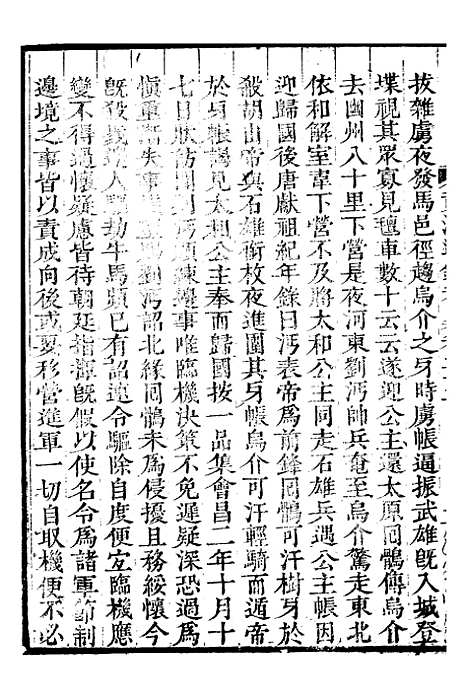 拔雜虜夜發馬邑徑趨烏介之牙時虜帳逼振武雄旣入城登
堞視其眾寡見氊車數十云云遂迎公主還太原囘鶻傳烏介
去幽州八十里下營是夜河東劉沔帥兵奄至烏介驚走東北
依和解室韋下營不及將太和公主同走石雄兵遇公主帳因
迎歸國後唐獻祖紀年錄曰沔表帝爲前鋒囘鶻可汗樹牙於
殺胡山帝與石雄銜枚夜進圍其牙帳烏介可汗輕騎而遁帝
於牙帳謁見太和公主奉而歸國按一品集會昌二年十月十
七日狀訪聞劉沔頗練邊事唯臨機決策不免遲疑深恐過爲
愼重漸失事劉沔詔北緣囘鶻未爲侵擾且務綏懷今
旣殺人劫牛馬頭已有詔達令驅除自度便宜臨機應
變不得過懷疑慮皆待朝廷指旣假以使名令爲諸軍節制
邊境之事皆以責成向後或要移營進軍一切自取機便不必